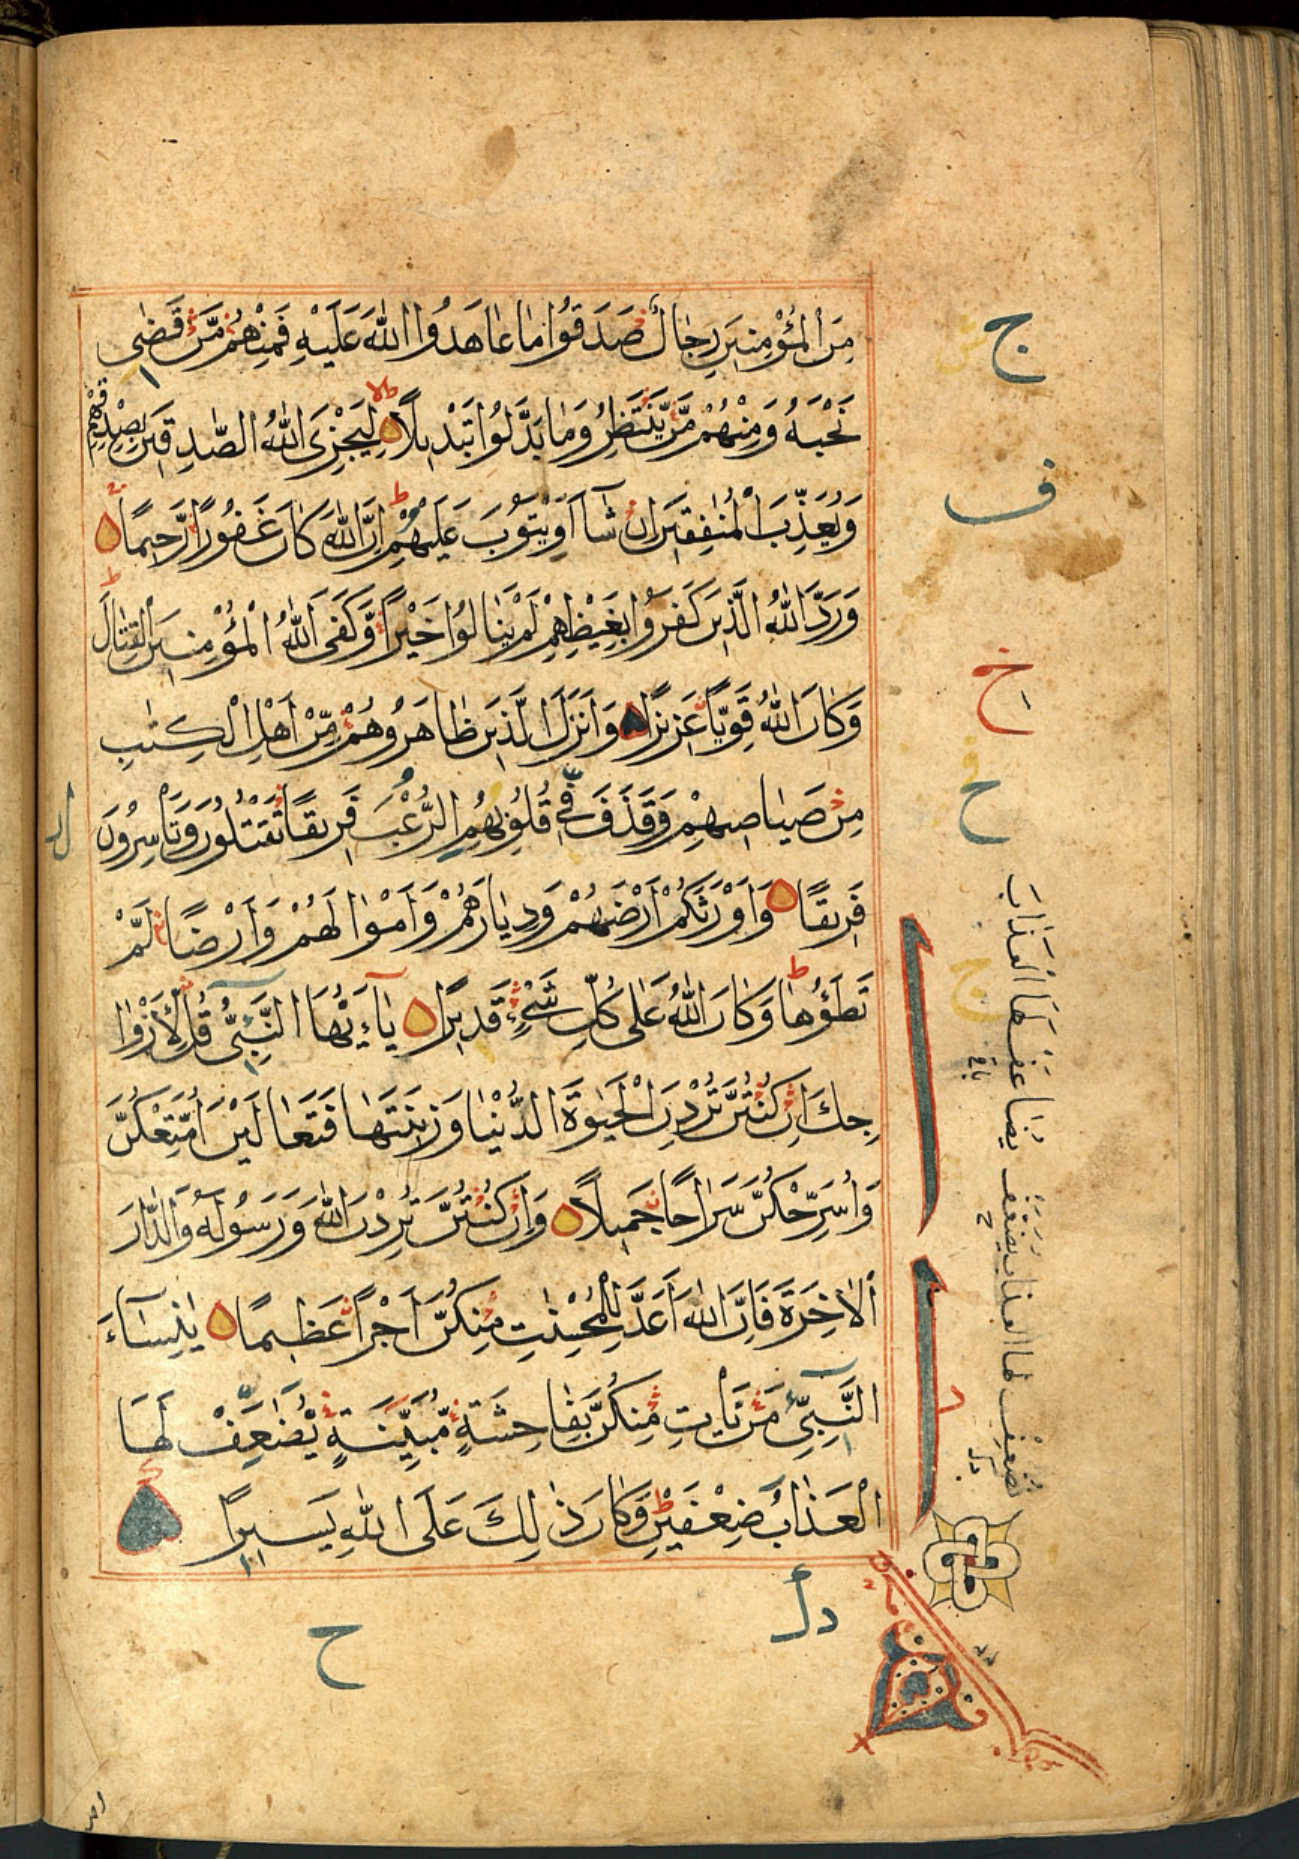 مِنَ الْمُؤْمِنِينَ رِجَالٌ صَدَقُوا مَا عَاهَدُوا اللّٰهَ عَلَيْهِ فَمِنْهُمْ مَّنْ قَضٰى
نَحْبَهُ وَمِنْهُمْ مَّنْ يَّنْتَظِرُ وَمَا بَدَّلُوا تَبْدِيلًا لِيَجْزِىَ اللّٰهُ الصّٰدِقِينَ بِصِدْقِهِمْ
وَيُعَذِّبَ الْمُنٰفِقِينَ اِنْ شَآءَ اَوْ يَتُوبَ عَلَيْهِمْ اِنَّ اللّٰهَ كَانَ غَفُورًا رَّحِيمًا
وَرَدَّ اللّٰهُ الَّذِينَ كَفَرُوا بِغَيْظِهِمْ لَمْ يَنَالُوا خَيْرًا وَّكَفَى اللّٰهُ الْمُؤْمِنِينَ الْقِتَالَ
وَكَانَ اللّٰهُ قَوِيًّا عَزِيزًا وَاَنْزَلَ الَّذِينَ ظَاهَرُوهُمْ مِّنْ اَهْلِ الْكِتٰبِ
مِنْ صَيَاصِيهِمْ وَقَذَفَ فِى قُلُوبِهِمُ الرُّعْبَ فَرِيقًا تَقْتُلُونَ وَتَاْسِرُونَ
فَرِيقًا وَاَوْرَثَكُمْ اَرْضَهُمْ وَدِيَارَهُمْ وَاَمْوَالَهُمْ وَاَرْضًا لَّمْ
تَطَؤُهَا وَكَانَ اللّٰهُ عَلٰى كُلِّ شَىْءٍ قَدِيرًا يَآءَيُّهَا النَّبِىُّ قُلْ لِّاَزْوَا
جِكَ اِنْ كُنْتُنَّ تُرِدْنَ الْحَيٰوةَ الدُّنْيَا وَزِينَتَهَا فَتَعَالَيْنَ اُمَتِّعْكُنَّ
وَاُسَرِّحْكُنَّ سَرَاحًا جَمِيلًا وَاِنْ كُنْتُنَّ تُرِدْنَ اللّٰهَ وَرَسُولَهُ وَالدَّارَ
الْاٰخِرَةَ فَاِنَّ اللّٰهَ اَعَدَّ لِلْمُحْسِنٰتِ مِنْكُنَّ اَجْرًا عَظِيمًا يٰنِسَآءَ
النَّبِىِّ مَنْ يَاْتِ مِنْكُنَّ بِفَاحِشَةٍ مُّبَيِّنَةٍ يُّضٰعَفْ لَهَا
الْعَذَابُ ضِعْفَيْنِ وَكَانَ ذٰلِكَ عَلَى اللّٰهِ يَسِيرًا
ج
ف
خ
ح
يُضَاعَفْ لَهَا الْعَذَابُ
يُضَعَّفْ لها العذاب
ح